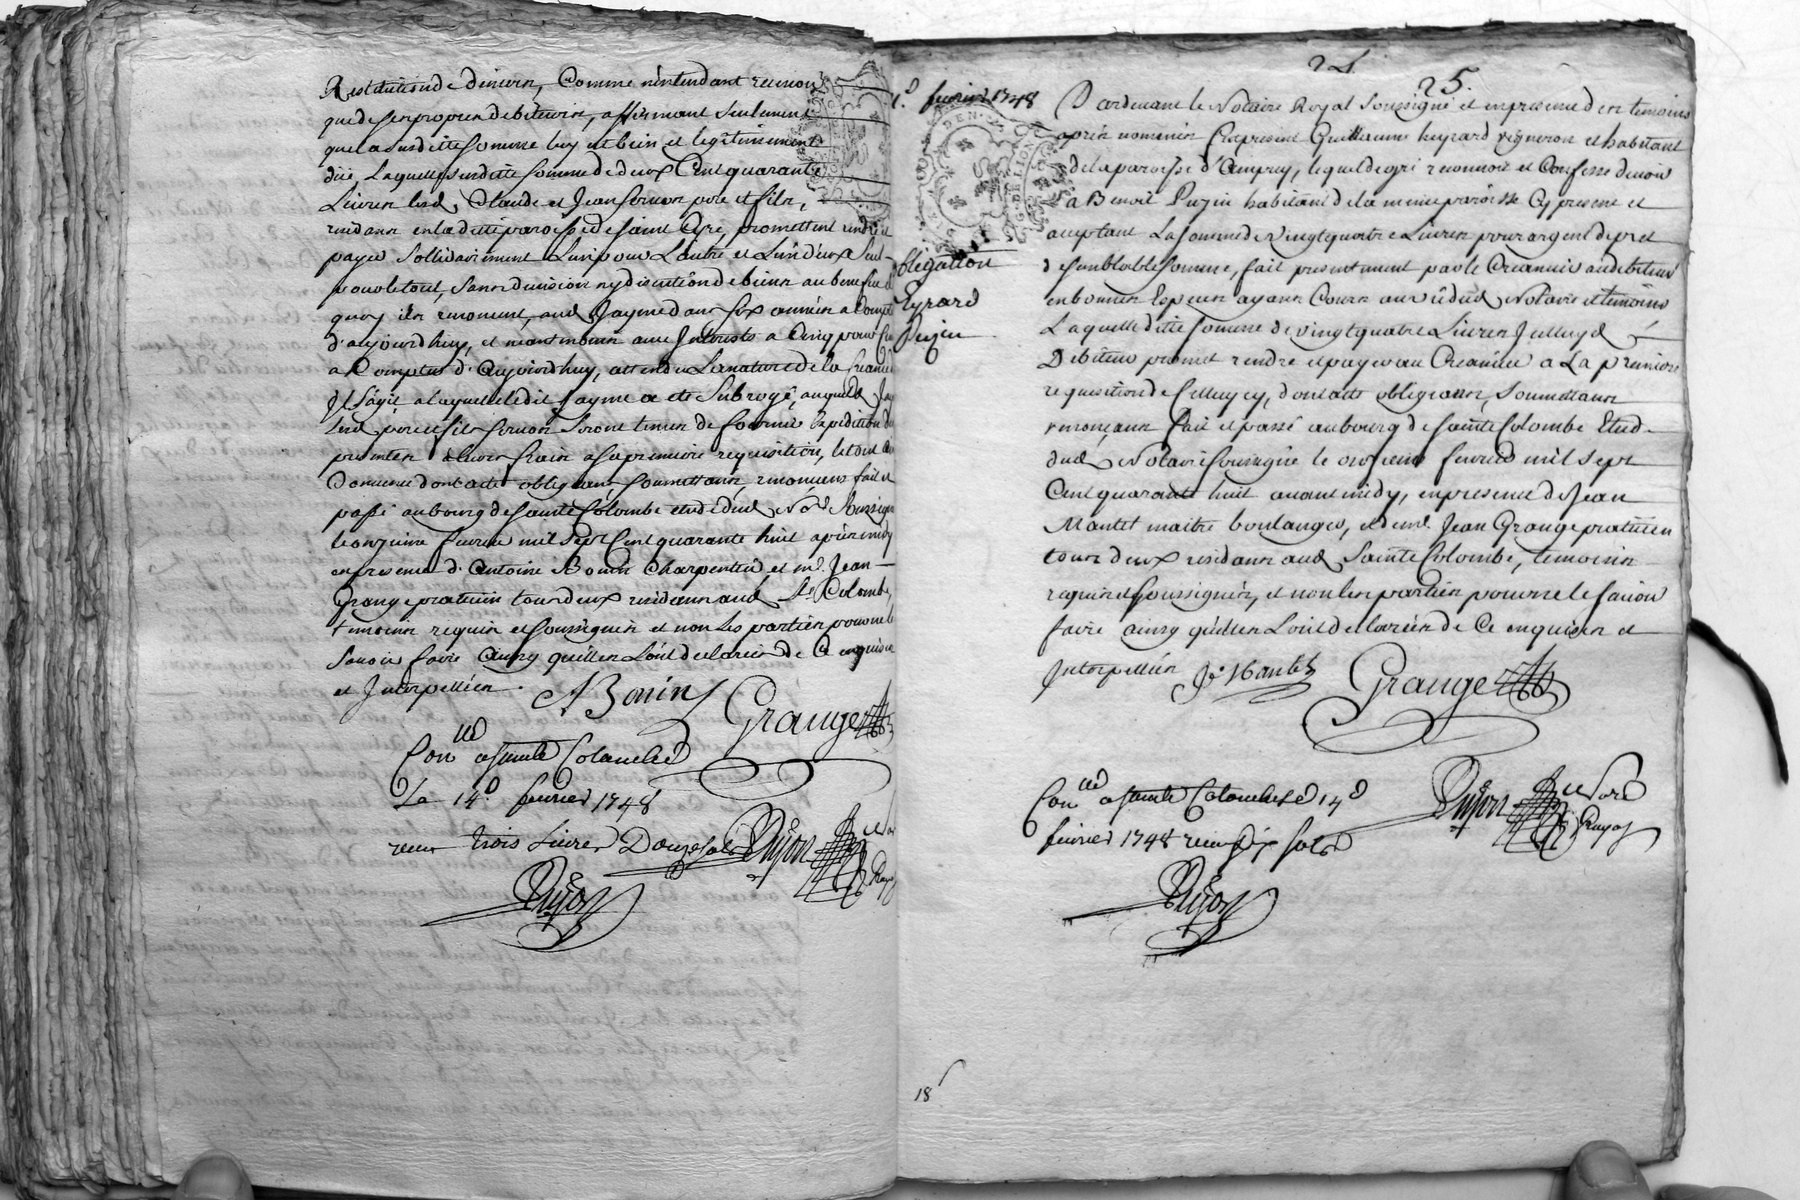 Restitution de deniers, Comme n'entendant reconnoi
que de ses propres debiteurs, affirmant seulement
que la susditte somme luy est bien et legitimement
düe Laquelle susditte somme de deux Cent quarante
Livres lesd. Claude et Jean pere et fils,
residans en laditte paroisse de saint Cyre, promettent rendre et
payer sollidairement Lun pour Lautre et Lun d'eux seul
pour le tout, sans division ny discution de biens au benefice de
quoy ils renoncent, aud. Jayme dans six années a Compter
d'aujourdhuy, et neantmoins avec Interests a Cinq pour Cen
a Compter d'aujourdhuy, attendu La nature de la Creance
Il s'agit a laquelle ledit Jayme a eté Subrogé, auquel
lesd. pere et fils seront tenus de fournir Expedition des
presentes a leurs frais a sa premiere requisition, le tout
Convenu dont acte obligeans soumettans, renonceans fait et
passé au bourg de sainte Colombe etude dud. No.re Soussigné
le onzieme fevrier mil sept Cent quarante huit après midy
en presence d'antoine Bonin Charpentier et m.e Jean
Grange praticien tous deux residans aud. Ste Colombe,
temoins requis et soussignés et non Les parties pour ne le
sçavoir faire ainsy qu'elles L'ont declarées de Ce enquises
et Interpellées.
ABonin Grange
Con.lé a sainte Colombe
Le 14.e fevrier 1748
receu trois Livres Douze sols Dujon No.re
Royal
Dujon
24.
25.
1.e fevrier 1748
GEN. DE LION
Obligation
Eyrard
Pujin
Pardevant le Notaire Royal Soussigné et en presence des temoins
après nommés fut present Guillaume heyrard vigneron et habitant
de la paroisse d'Ampuy, lequel de gré reconnoit et Confesse devoir
a Benoit Pujin habitant de la même paroisse Cy present et
acceptant La somme de vingt quatre Livres pour argent de pret
de semblable somme, fait presentement par le Creancier au debiteur
en bonnes Especes ayans Cours au vû dud. Notaire et temoins
Laquelle ditte somme de vingt quatre Livres Icelluy d.
Debiteur promet rendre et payer au Creancier a La premiere
requisition de Celluy cy, dont acte obligeans, soumettans
renonçans fait et passé au bourg de sainte Colombe Etude
dud. Notaire soussigné le onzieme fevrier mil sept
Cent quarante huit avant midy, en presence de Jean
Mantel maitre boulanger, et de m.e Jean Grange praticien
tous deux residans aud. Sainte Colombe, temoins
requis et soussignés, et non les parties pour ne le sçavoir
faire ainsy qu'elles L'ont declarées de Ce enquises et
Interpellées J. Mantel Grange
Con.lé a sainte Colombe le 14.e
fevrier 1748 receu dix sols Dujon No.re
Royal
Dujon
18